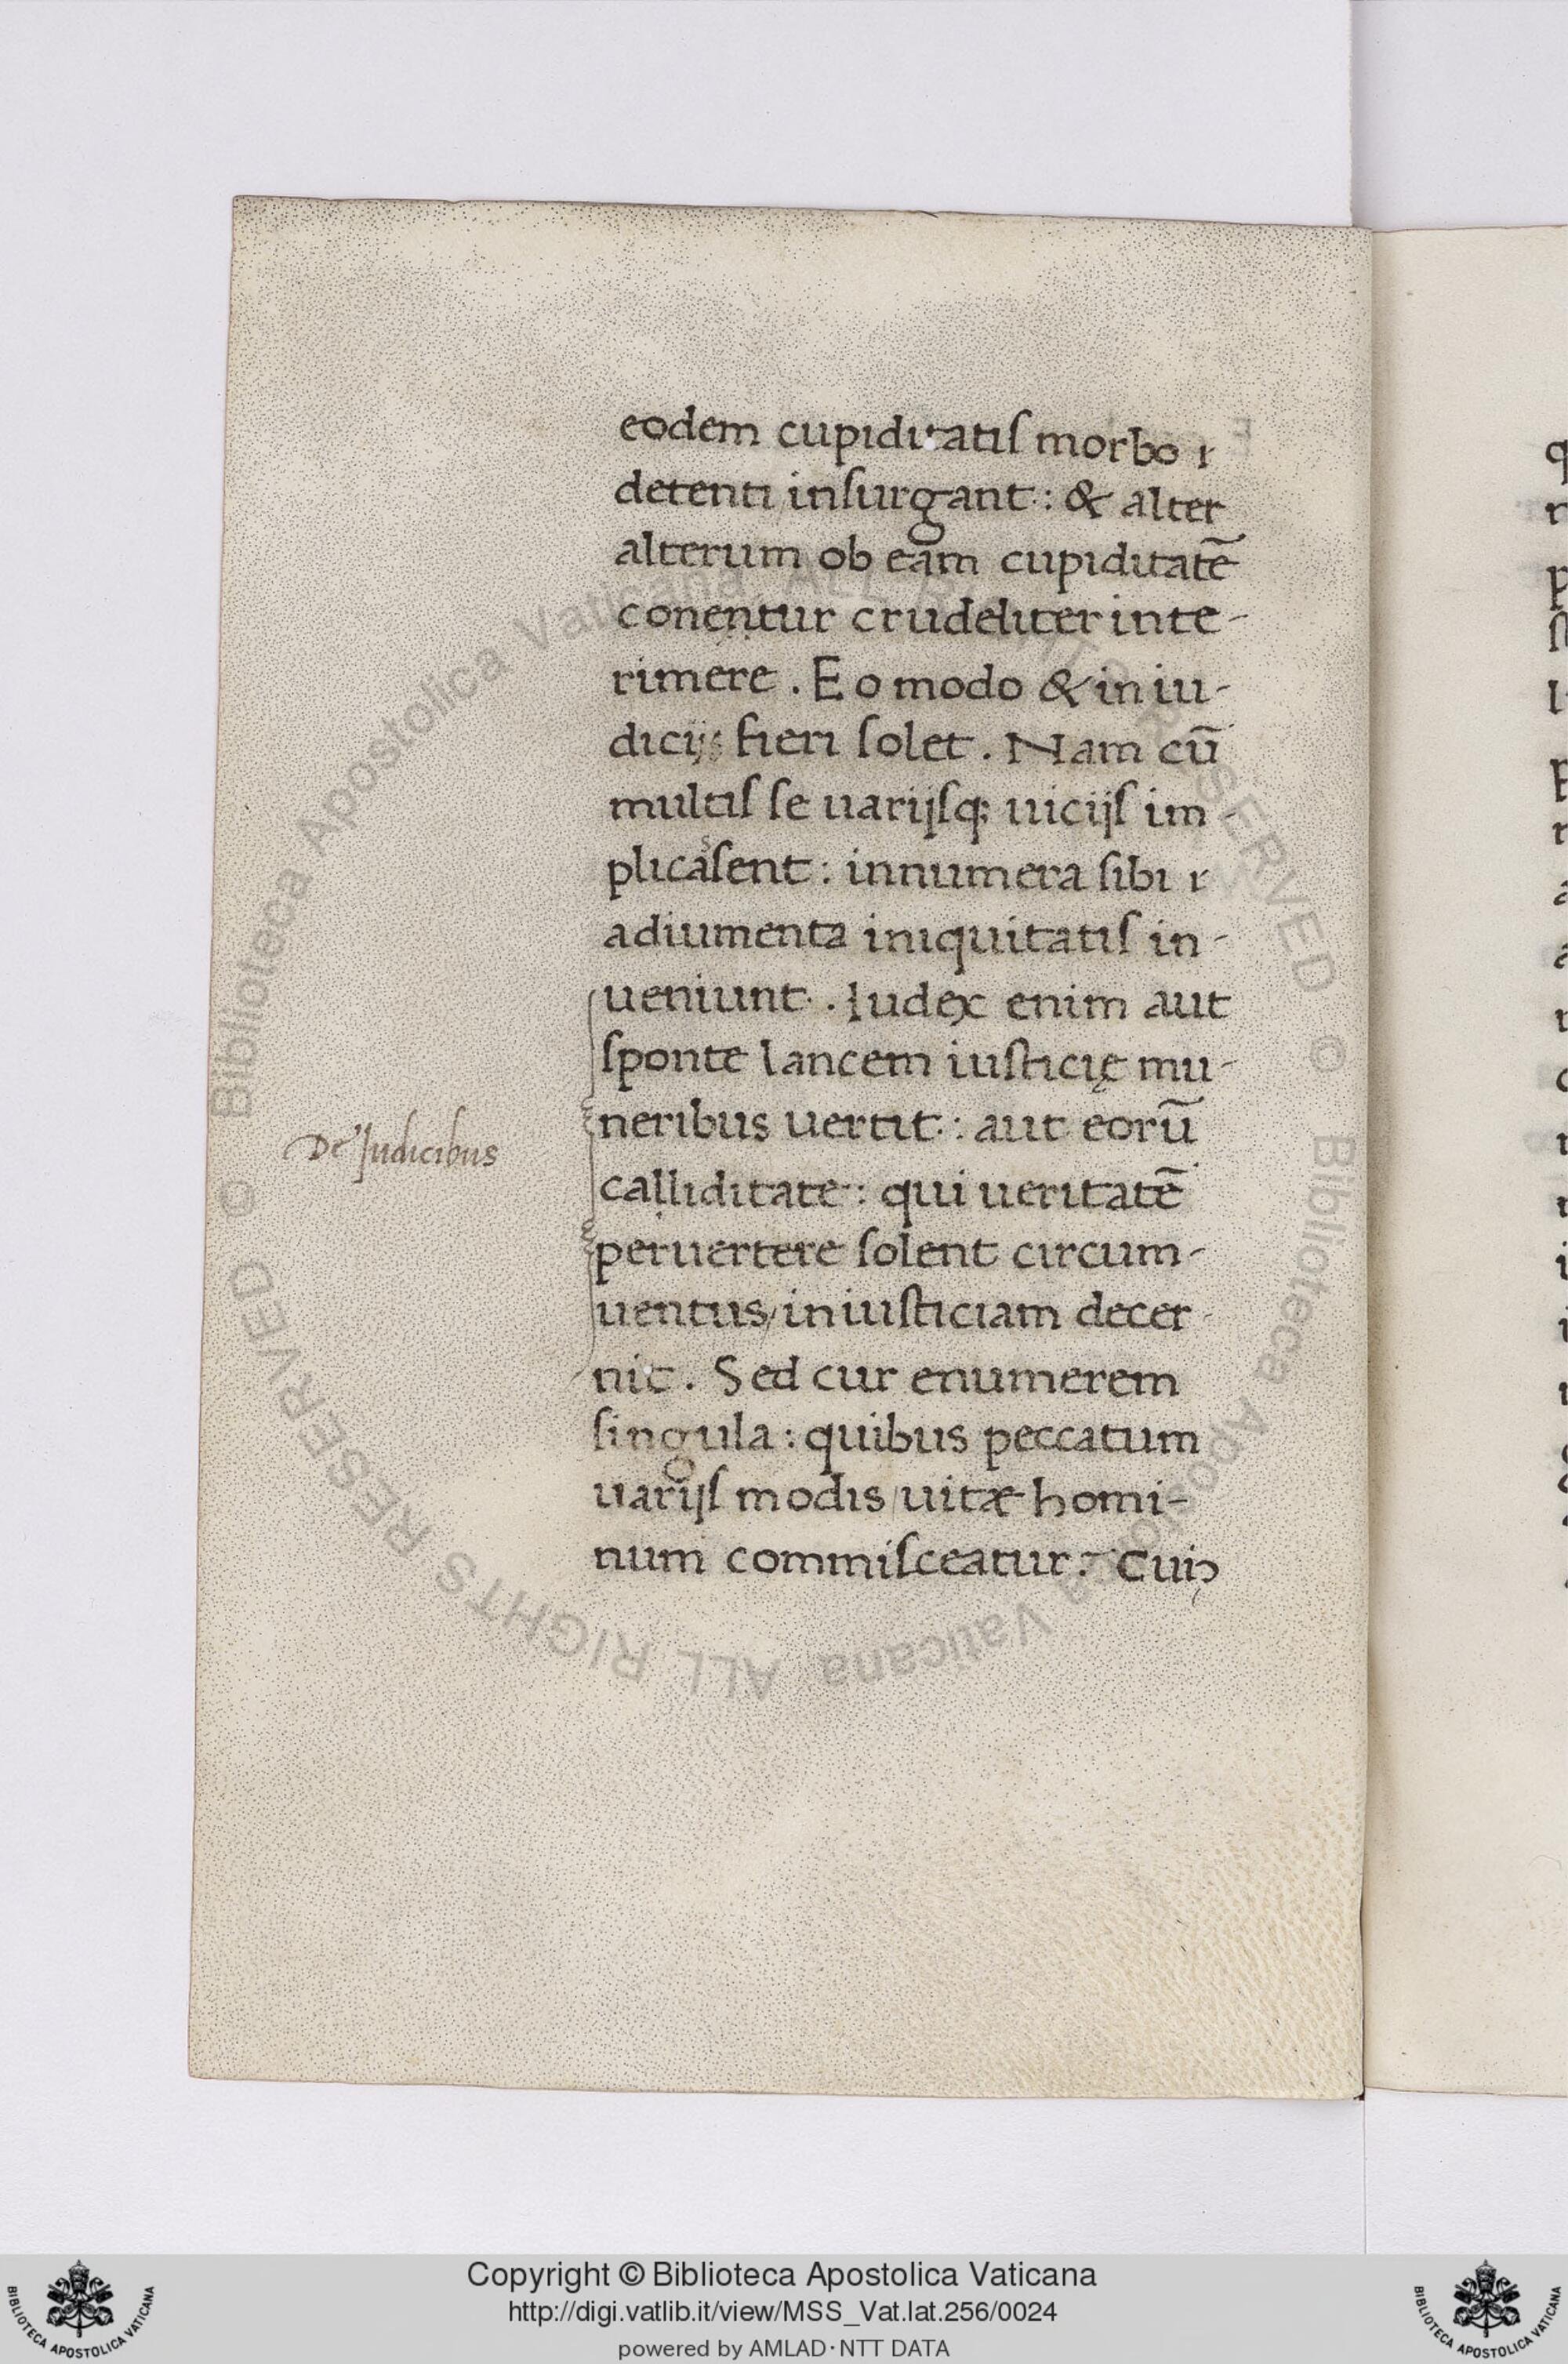 eodem cupiditatiſ morbo
detenti inſurgant: & alter
alterum ob eam cupiditatē
conentur crudeliter inte-
rimere. Eo modo & in iu-
dicijs fieri ſolet. Nam cū
multiſ ſe uarijſq; uicijſ im-
plicasſent: innumera ſibi
adiumenta iniquitatiſ in-
ueniunt. Iudex enim aut
ſponte lancem iuſticię mu-
neribus uertit: aut eorū
De Judicibus
calliditate: qui ueritatē
peruertere ſolent circum-
uentus/ iniuſticiam decer-
nit. Sed cur enumerem
ſingula: quibus peccatum
uarijſ modis/ uitæ homi-
num commiſceatur? Cuiꝰ
Copyright © Biblioteca Apostolica Vaticana
http://digi.vatlib.it/view/MSS_Vat.lat.256/0024
powered by AMLAD·NTT DATA
BIBLIOTECA APOSTOLICA VATICANA
BIBLIOTECA APOSTOLICA VATICANA
© Biblioteca Apostolica Vaticana ALL RIGHTS RESERVED © Biblioteca Apostolica Vaticana ALL RIGHTS RESERVED